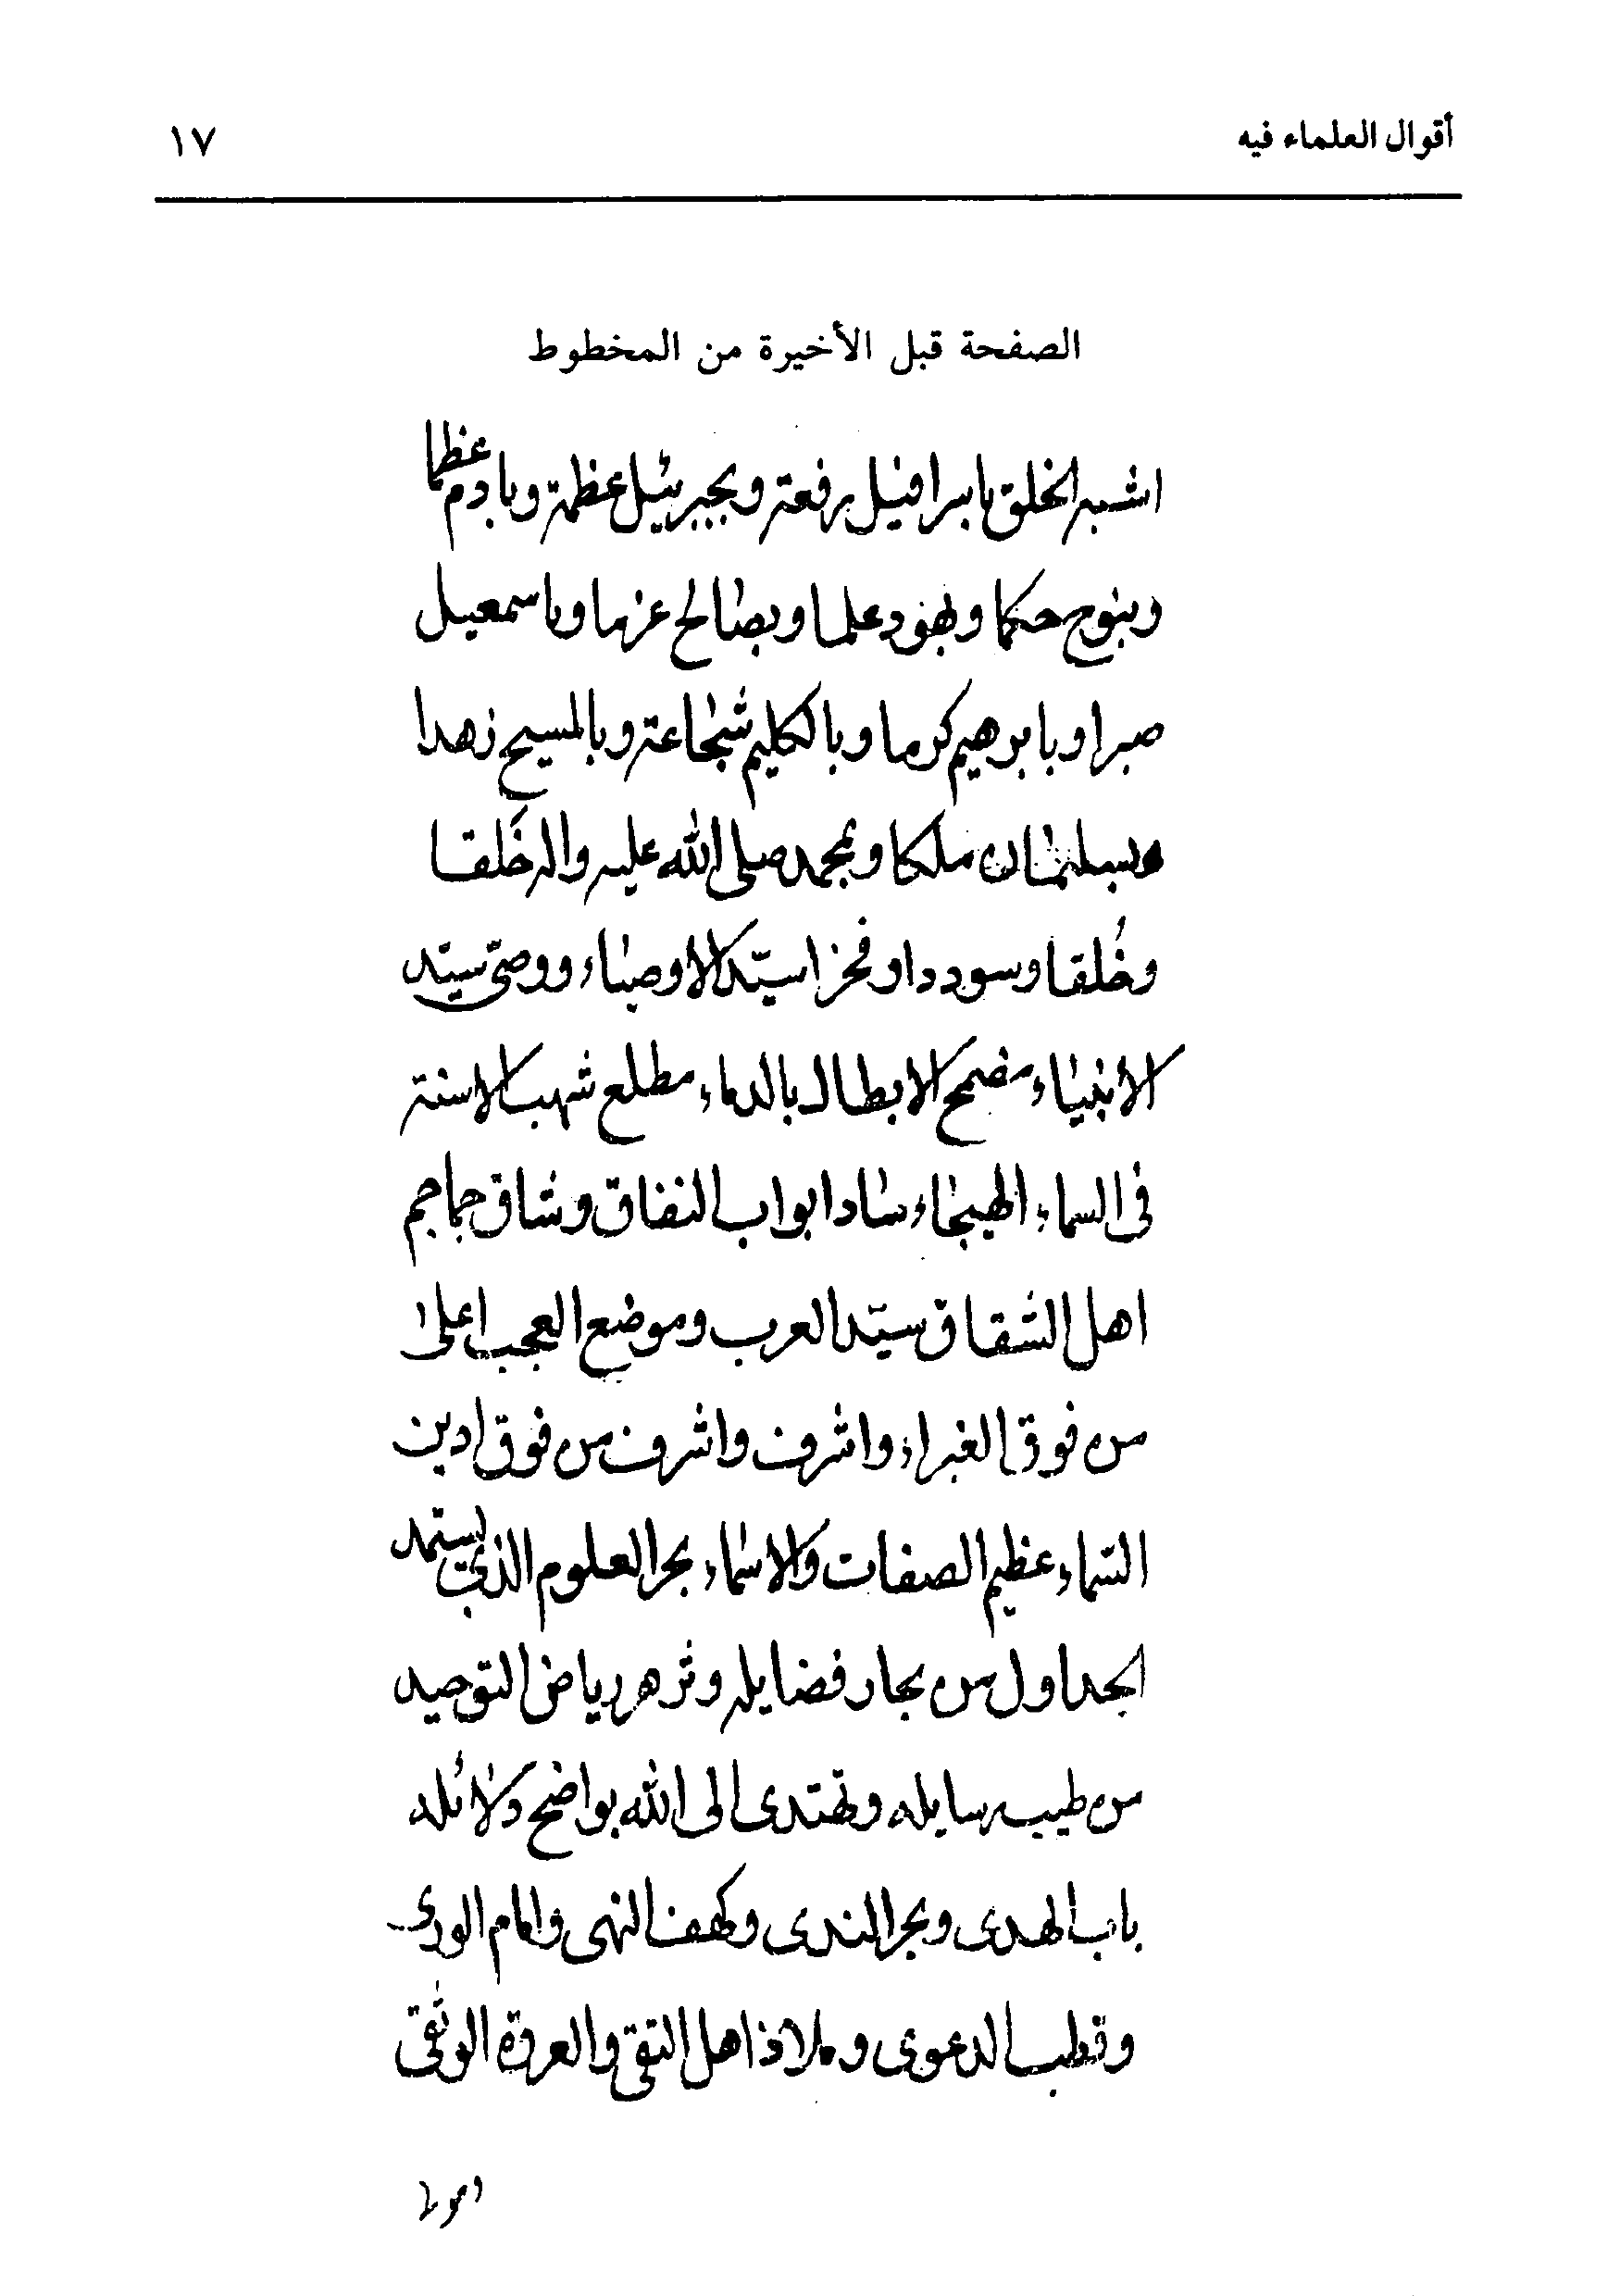 أقوال العلماء فيه
١٧
الصفحة قبل الأخيرة من المخطوط
اشبه الخلق باسرافيل رفعة وبجبرئيل عظمة وبادم عظما
وبنوح حكما وبهود علما وبصالح عزما وباسمعيل
صبرا وبابرهيم كرما وبالكليم شجاعة وبالمسيح زهدا
وبسليمان ملكا وبمحمد صلى الله عليه واله خَلقا
وخُلقا وسوددا وفخرا سيّد الاوصياء ووصيّ سيّد
الانبياء مضمح الابطال بالدماء مطلع شهب الاسنة
فى السماء الهيجاء ساد ابواب النفاق وشاق جماجم
اهل الشقاق سيّد العرب وموضع العجب اعلى
من فوق الغبراء واشرف واشرف من فوق اديم
السّماء عظيم الصفات والاسماء بحر العلوم الذي يستمد
الجداول من بحار فضايله وتزهر رياض التوحيد
من طيب رسايله وتهتدى الى الله بواضح دلائله
باب الهدى وبحر الندى وكهف النهى وامام الورى
وقطب الدعوى وملاذ اهل التقى والعروة الوثقى